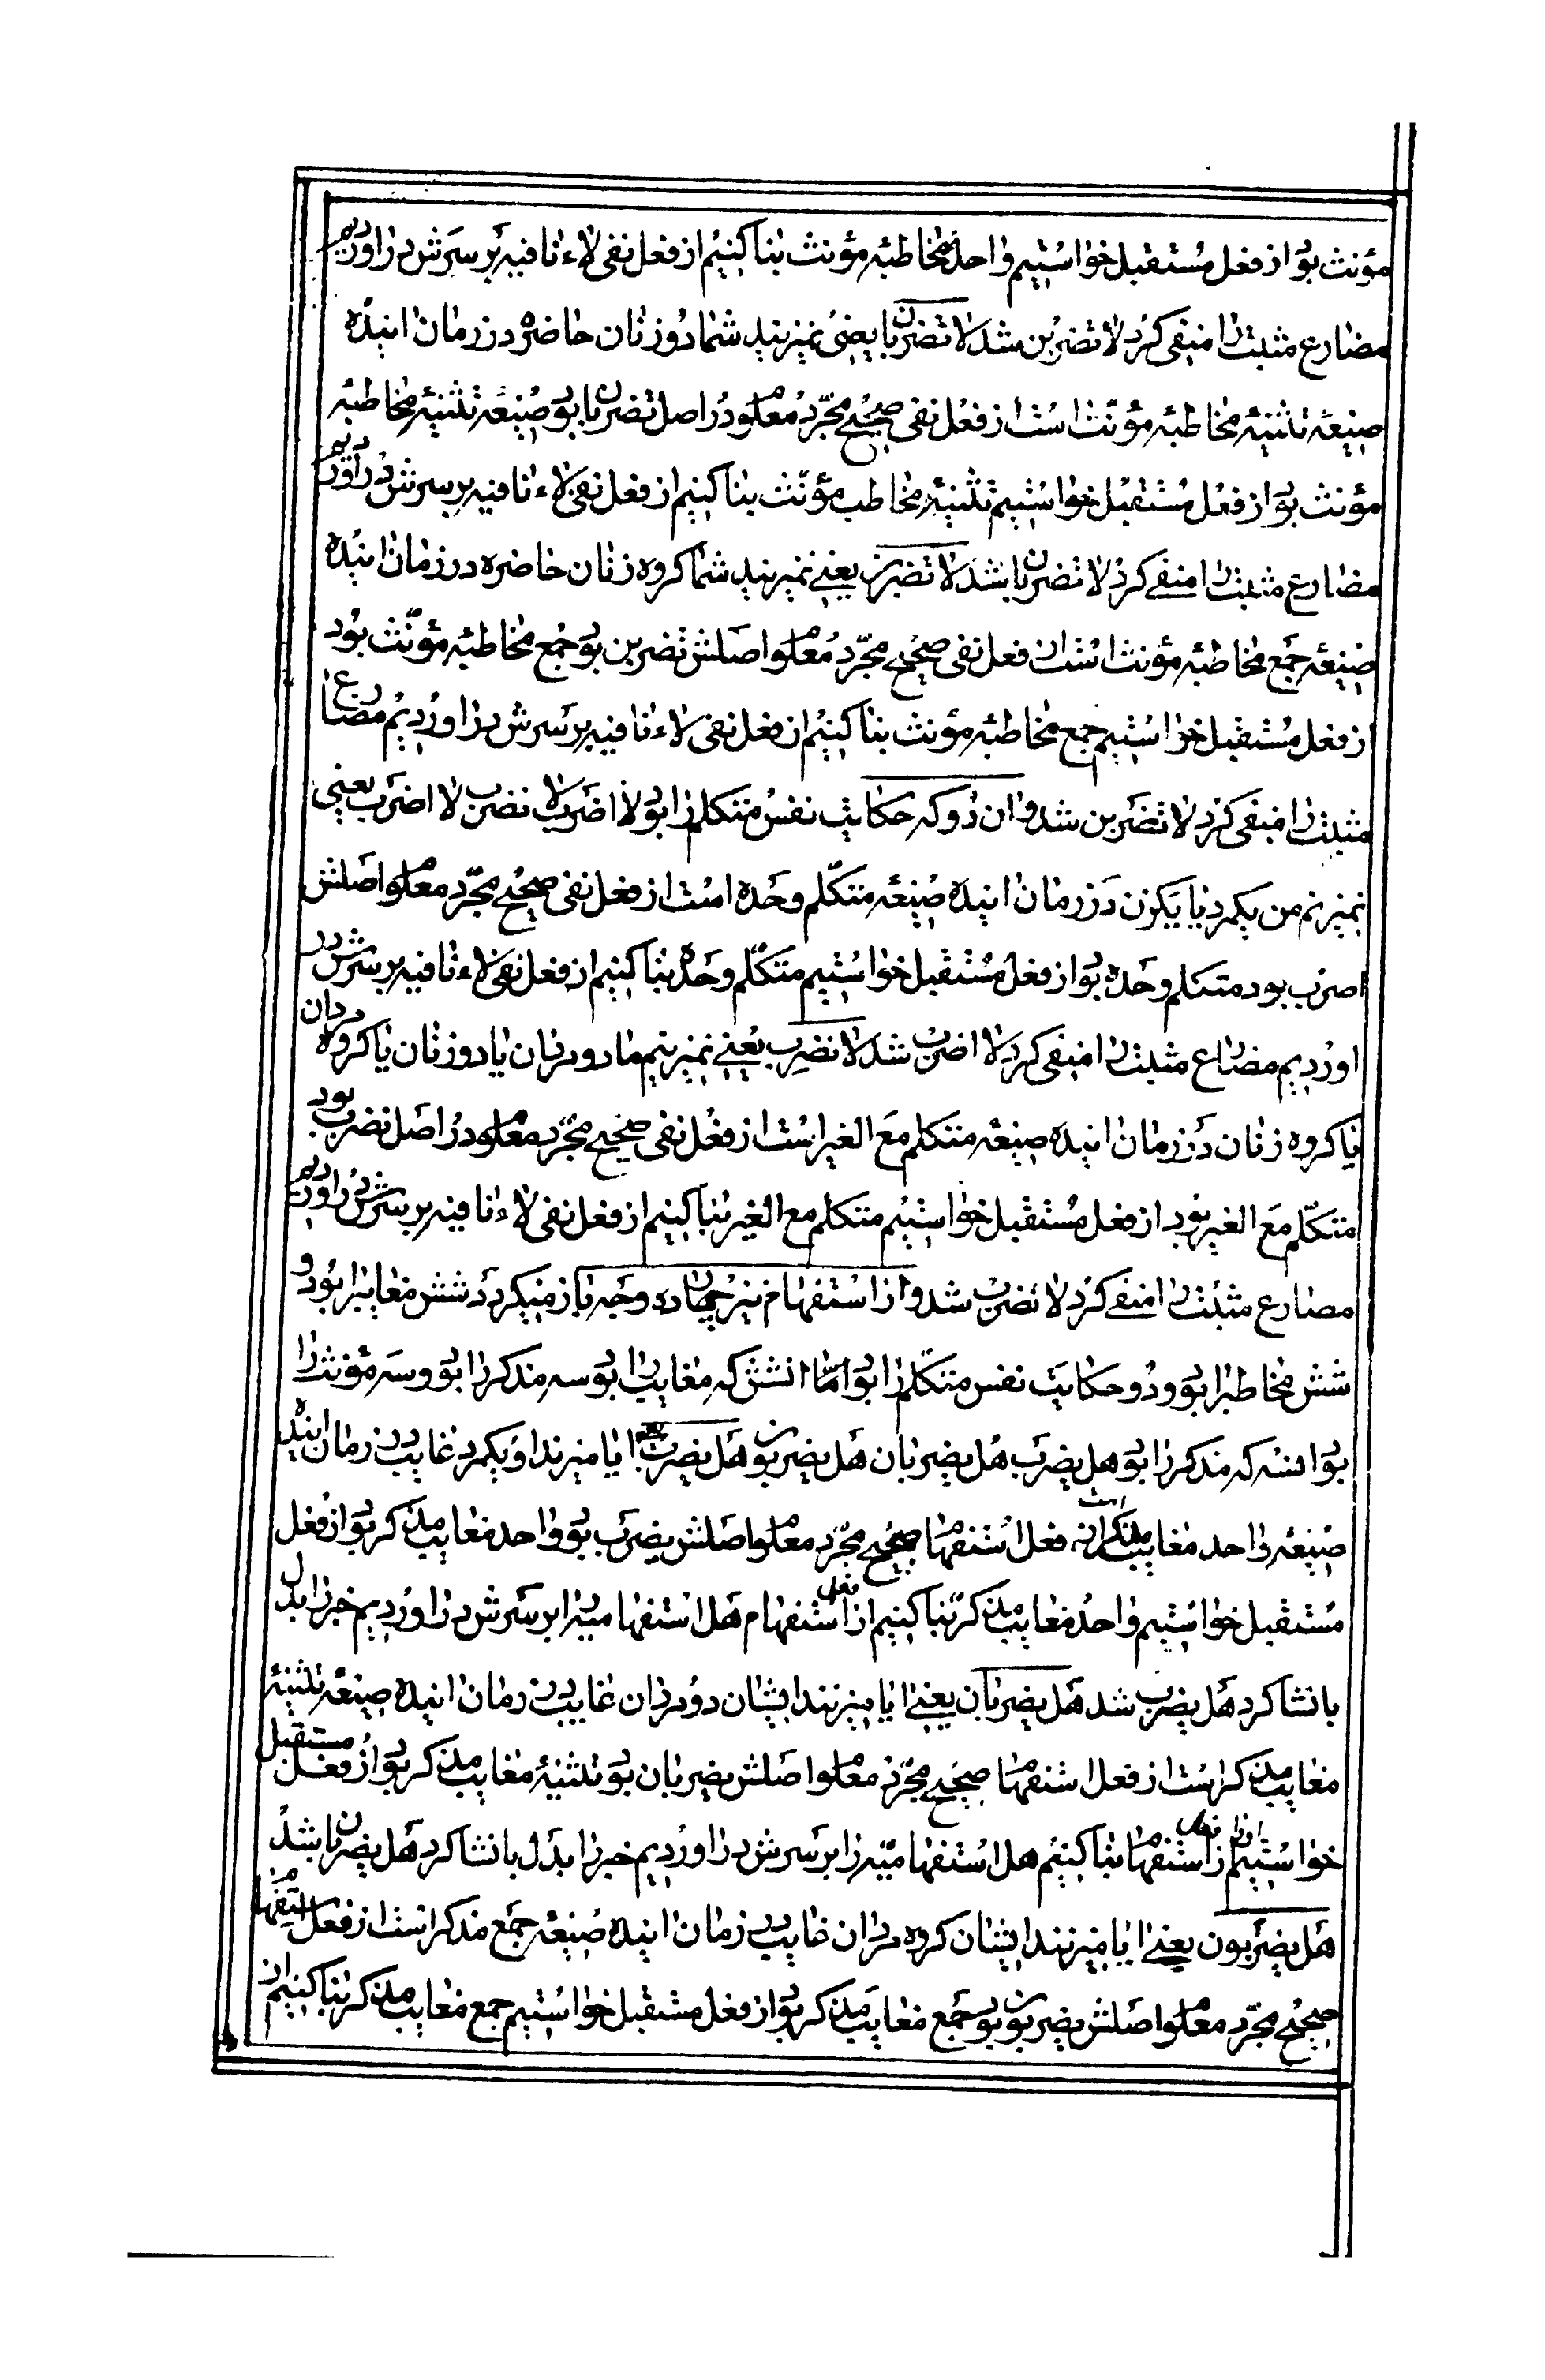 مؤنث بود از فعل مستقبل خواستیم واحد مخاطبه مؤنث بنا کنیم از فعل نفی لاء نافیه بر سرش در اوردیم
مضارع مثبت را منفی کرد لا تضربین شد لا تضربان یعنی نمیزنید شما دو زنان حاضره در زمان اینده
صیغه تثنیه مخاطبه مؤنث است از فعل نفی صحیح مجرد معلوم در اصل تضربان بود صیغه تثنیه مخاطبه
مؤنث بود از فعل مستقبل خواستیم تثنیه مخاطب مؤنث بنا کنیم از فعل نفی لاء نافیه بر سرش در آوردیم
مضارع مثبت را منفی کرد لا تضربان شد لا تضربن یعنی نمیزنید شما کروه زنان حاضره در زمان اینده
صیغه جمع مخاطبه مؤنث است از فعل نفی صحیح مجرد معلوم اصلش تضربن بود جمع مخاطبه مؤنث بود
از فعل مستقبل خواستیم جمع مخاطبه مؤنث بنا کنیم از فعل نفی لاء نافیه بر سرش در اوردیم مضارع
مثبت را منفی کرد لا تضربن شد و ان دو که حکایت نفس متکلم را بود لا اضرب لا نضرب لا اضرب یعنی
نمیزنم من یکمرد یا یکزن در زمان اینده صیغه متکلم وحده است از فعل نفی صحیح مجرد معلوم اصلش
اضرب بود متکلم وحده بود از فعل مستقبل خواستیم متکلم وحده بنا کنیم از فعل نفی لاء نافیه بر سرش در
اوردیم مضارع مثبت را منفی کرد لا اضرب شد لا نضرب یعنی نمیزنیم ما دو مردان یا دو زنان یا کروه مردان
یا کروه زنان در زمان اینده صیغه متکلم مع الغیر است از فعل نفی صحیح مجرد معلوم در اصل نضرب بود
متکلم مع الغیر بود از فعل مستقبل خواستیم متکلم مع الغیر بنا کنیم از فعل نفی لاء نافیه بر سرش در اوردیم
مضارع مثبت را منفی کرد لا نضرب شد و از استفهام نیز چهارده وجه باز میکردد شش مغایب را بود و
شش مخاطب را بود و دو حکایت نفس متکلم را بود اما انشش که مغایب را بود سه مذکر را بود و سه مؤنث را
بود انسه که مذکر را بود هل یضرب هل یضربان هل یضربون هل یضرب ایا میزند او یکمرد غایب در زمان اینده
صیغه واحد مغایب مذکر است از فعل استفهام صحیح مجرد معلوم اصلش یضرب بود واحد مغایب مذکر بود از فعل
مستقبل خواستیم واحد مغایب مذکر بنا کنیم از فعل استفهام هل استفهامیه را بر سرش در اوردیم خبر را بدل
بانشا کرد هل یضرب شد هل یضربان یعنی ایا میزنند ایشان دو مردان غایب در زمان اینده صیغه تثنیه
مغایب مذکر است از فعل استفهام صحیح مجرد معلوم اصلش یضربان بود تثنیه مغایب مذکر بود از فعل مستقبل
خواستیم او را از فعل استفهام بنا کنیم هل استفهامیه را بر سرش در اوردیم خبر را بدل بانشا کرد هل یضربان شد
هل یضربون یعنی ایا میزنند ایشان کروه مردان غایب در زمان اینده صیغه جمع مذکر است از فعل استفهام
صحیح مجرد معلوم اصلش یضربون بود جمع مغایب مذکر بود از فعل مستقبل خواستیم جمع مغایب مذکر بنا کنیم از